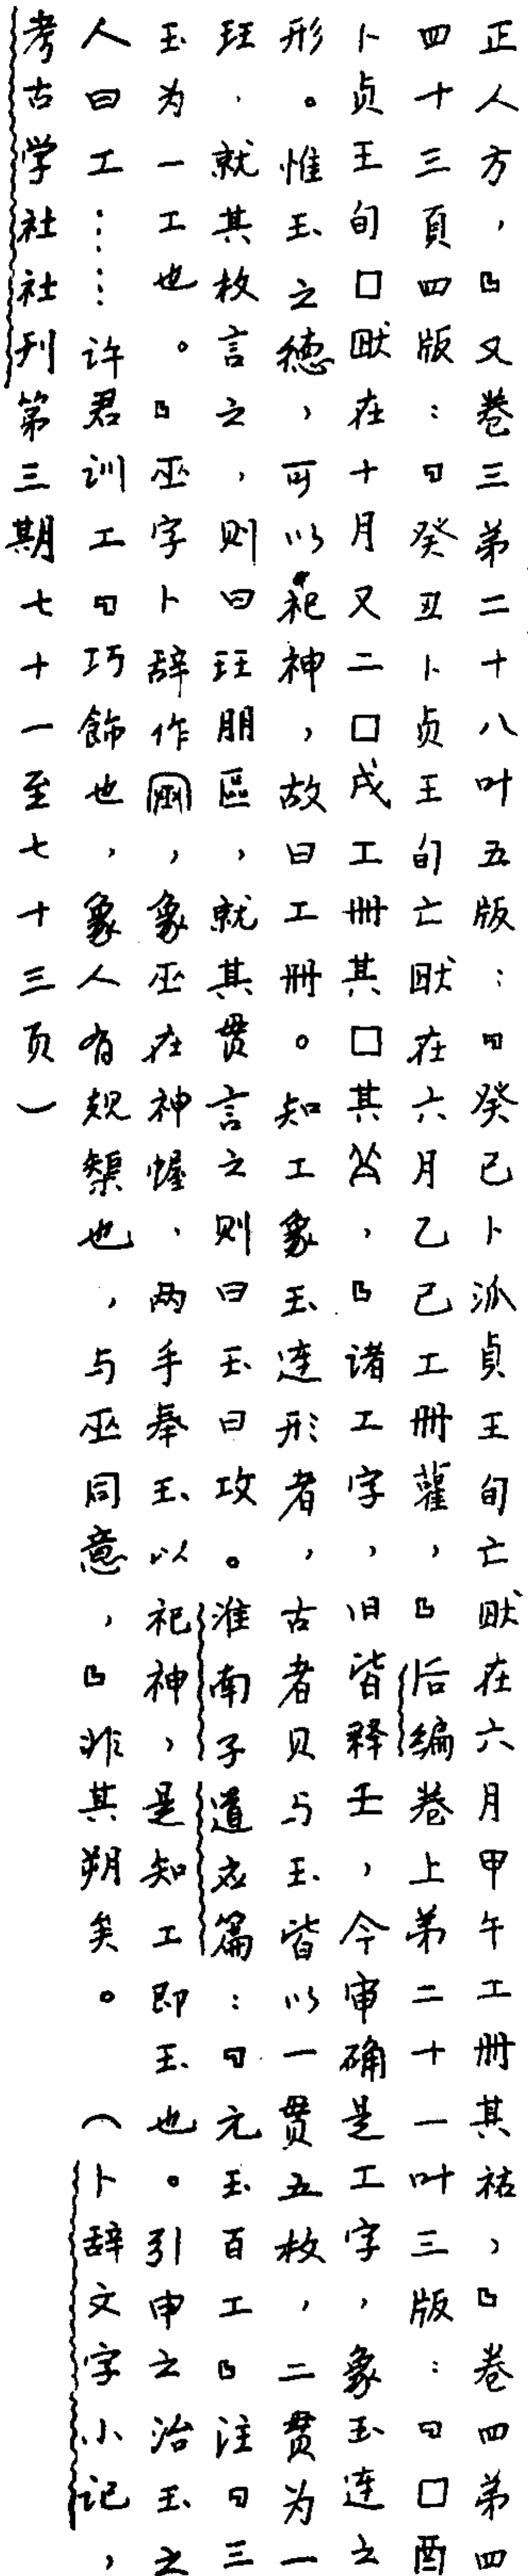 正人方，」又卷三第二十八叶五版：「癸巳卜泒貞王旬亡𤞷在六月甲午工冊其祐，」卷四第四
四十三頁四版：「癸丑卜贞王旬亡𤞷在六月乙巳工冊雚，」后编卷上第二十一叶三版：「□酉
卜贞王旬□𤞷在十月又二□戌工冊其□其，」诸工字，旧皆释壬，今审确是工字，象玉连之
形。惟玉之德，可以祀神，故曰工冊。知工象玉连形者，古者贝与玉皆以一贯五枚，二贯为一
珏，就其枚言之，则曰珏朋區，就其贯言之则曰玉曰攻。淮南子道应篇：「元玉百工」注「三
玉为一工也。」巫字卜辞作，象巫在神幄，两手奉玉以祀神，是知工即玉也。引申之治玉之
人曰工……许君训工「巧飾也，象人有規榘也，与巫同意，」非其朔矣。（卜辞文字小记，
考古学社社刊第三期七十一至七十三页）